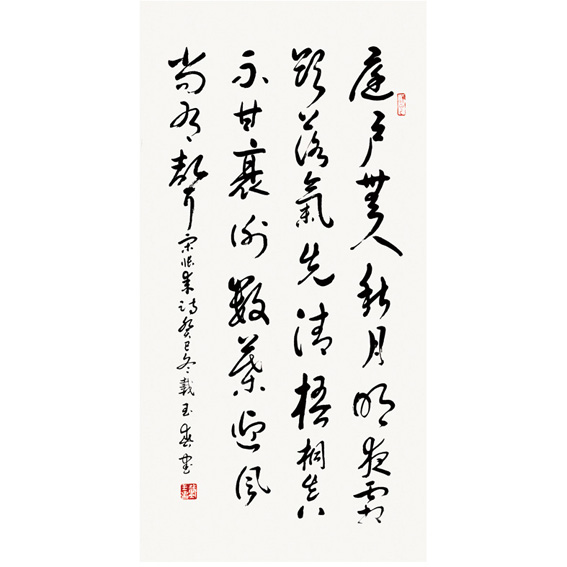 庭戶無人秋月明夜霜
欲落氣先清梧桐真
不甘衰謝數葉迎風
尚有聲 宋張耒詩癸巳冬載玉春書